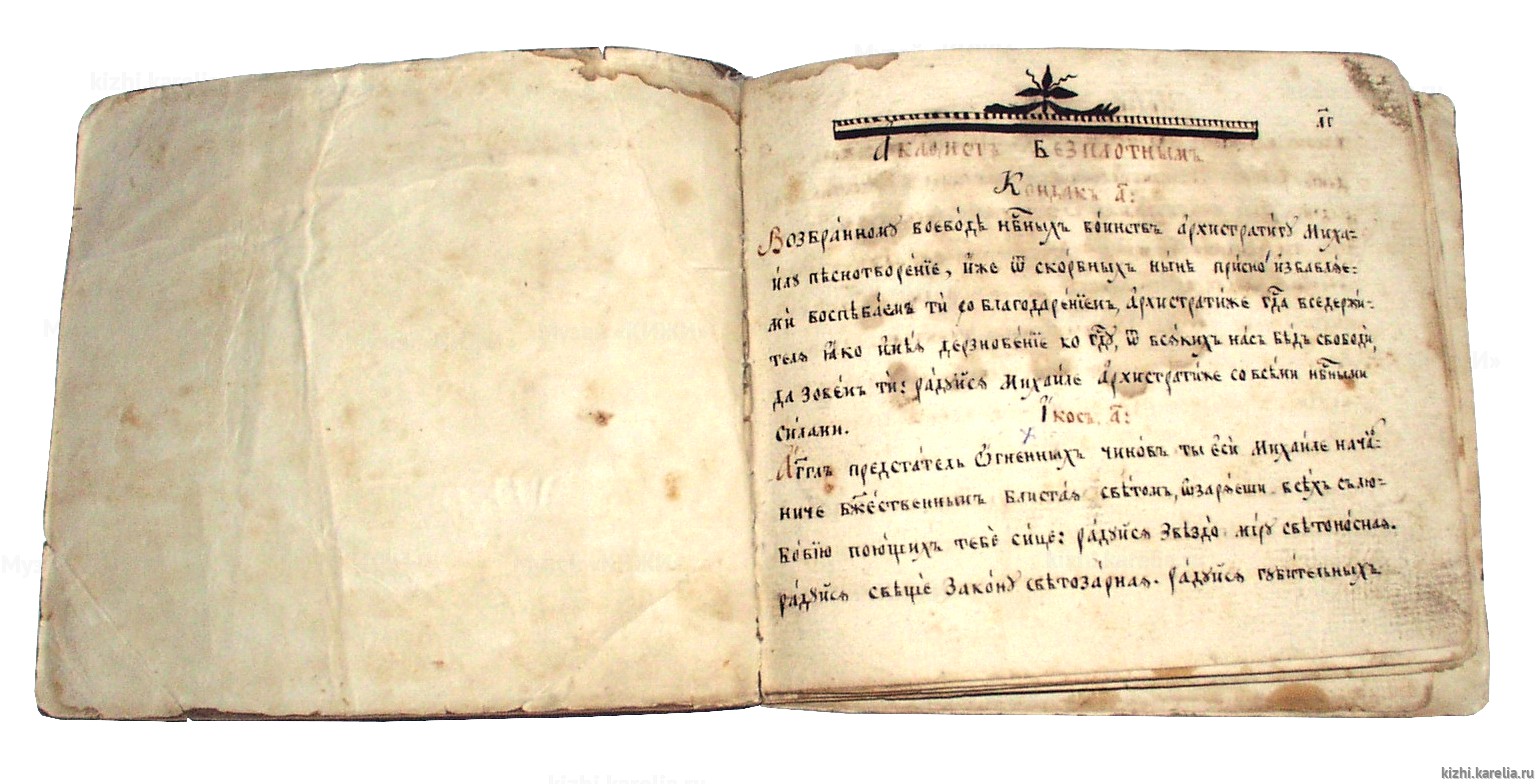 л҃г
Акаѳистъ Безплотнымъ
Кондакъ а҃:
Возбра́нному воево́дѣ нб҃ныхъ во́инствъ а҆рхистрати́гу миха-
и́лу пѣснотворе́нїе, и҆́же ѿ ско́рбныхъ ны́нѣ при́сно и҆збавлѧ́е-
ми̇ воспѣва́емъ ти̇ со благодаре́нїемъ, а҆рхистрати́же гд҃а вседержи́-
телѧ ꙗ҆́ко и҆мѣ́ѧ дерзнове́нїе ко гд҃у, ѿ всѧ́кихъ на́съ бѣ́дъ свободи̇,
да зове́мъ ти̇: ра́дуйсѧ михаи́ле а҆рхистрати́же со всѣ́ми нб҃ными
си́лами.
І҆́косъ. а҃:
А҆́гг҃лъ предста́тель ѻ҆́гненныхъ чино́въ ты є҆сѝ михаи́ле нача́-
ниче бж҃е́ственнымъ блиста́ѧ свѣ́томъ, ѡ҆зарѧ́еши всѣ́хъ съ лю-
бо́вїю пою́щихъ тебѐ си́це: ра́дуйсѧ звѣздо̀ мі́ру свѣтоно́снаѧ.
ра́дуйсѧ свѣщѐ зако́ну свѣтоза́рнаѧ. ра́дуйсѧ губи́тельныхъ
kizhi.karelia.ru